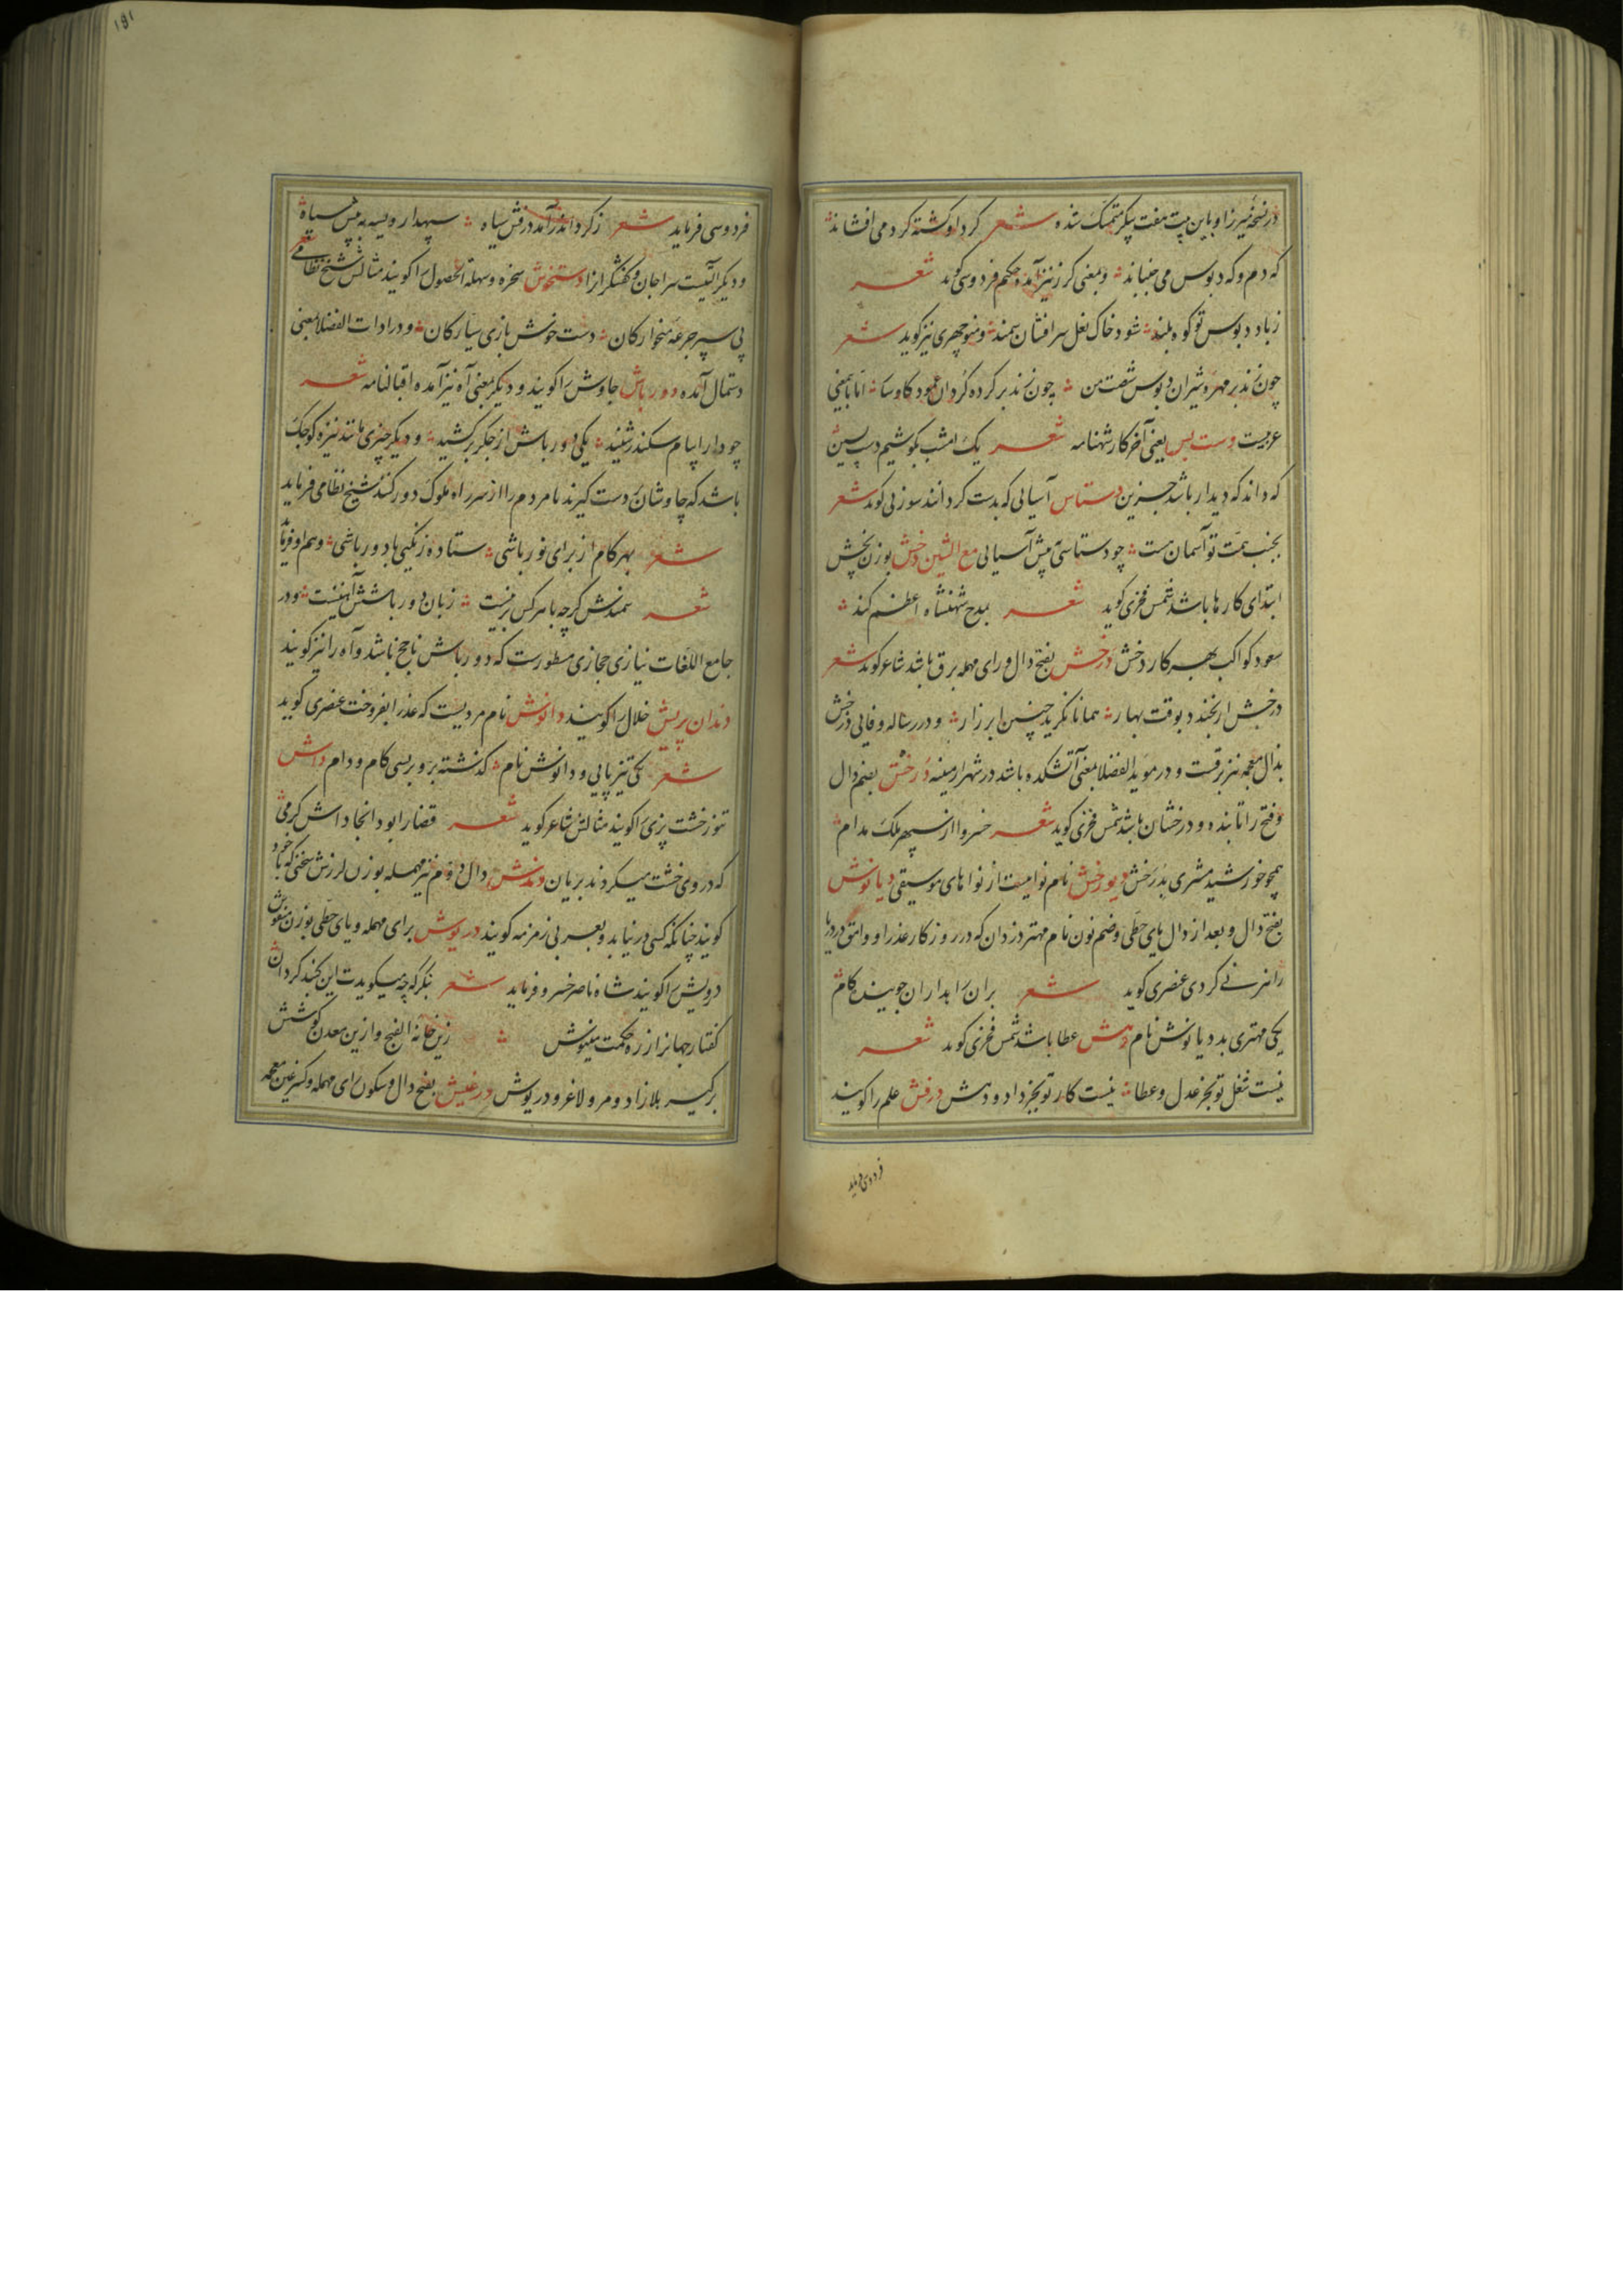 در نسخه میرزا و باین بیت هفت پیکر متمسک شده شعر کرد او کشته کرد می افشاند
که دم و که دبوس می جنباند و بمعنی کرز نیز آمده حکیم فردوسی کوید شعر
ز باد دبوس تو کوه بلند شود خاک نعل سرافشان سمند و منوچهری نیز کوید شعر
چون نذیر مهره شیران دبوس شصت من چون نذیر کرده کردان عمود کاوسا اما باین معنی
عربیست دست پس یعنی آخر کار شهنامه شعر یک امشب بکوشیم دست پسین
که داند که دیدار باشد جز این دستاس آسیایی که بدست کردانند سوزنی کوید شعر
بجنب همت تو آسمان هست چو دستاسی به پیش آسیایی مع الشین دخش بوزن بخش
ابتدای کارها باشد شمس فخری کوید شعر بمدح شهنشاه اعظم کند
سعود کواکب بهر کار دخش درخش بفتح دال و رای مهمله برق باشد شاعر کوید شعر
درخش ار نخندد بوقت بهار همانا نکرید چنین ابر زار و در رساله وفایی درخش
بذال معجمه نیز برقست و در موید الفضلا بمعنی آتشکده باشد در شهر ارمینه درخش بضم دال
و فتح را تابنده و درخشان باشد شمس فخری کوید شعر خسروا از سپهر ملک مدام
همچو خورشید مشتری بدرخش دیورخش نام نواییست از نواهای موسیقی دیانوش
بفتح دال و بعد از دال یای حطی و ضم نون نام مهتر دزدان که در روزکار عذرا و وامق در دریا
راهزنی کردی عنصری کوید شعر بران راهداران جوینده کام
یکی مهتری بد دیانوش نام دهش عطا باشد شمس فخری کوید شعر
نیست شغل تو بجز عدل و عطا نیست کار تو بجز داد و دهش درفش علم را کویند
فردوسی فرماید
۱۵۱
فردوسی فرماید شعر ز کرد اندر آمد درفش سیاه سپهدار ویسه به پیش سپاه
و دیکر آلتیست سراجان و کفشکرانرا دستخوش سخره و سهله الحصول را کویند مثالش شیخ نظامی شعر
پی سپر جرعه میخوارکان دست خوش بازی سیارکان و در ادات الفضلا بمعنی
دستمال آمده دورباش جاوش را کویند و دیکر بمعنی آه نیز آمده اقبالنامه شعر
چو دارا پیام سکندر شنید یکی دورباش از جکر برکشید و دیکر چیزی مانند نیزه کوچک
باشد که چاوشان بدست کیرند تا مردم را از سر راه ملوک دور کنند شیخ نظامی فرماید
شعر بهر کام از برای نور باشی ستاده زنکیی با دورباشی و هم او فرماید
شعر سمندش کرچه با هر کس بزینست زبان دورباشش آهنینست و در
جامع اللغات نیازی حجازی مسطورست که دورباش ناجخ باشد و آه را نیز کویند
دندان پریش خلال را کویند دانوش نام مردیست که عذرا بفروخت عنصری کوید
شعر یکی تیز پایی و دانوش نام کذشته برو بر بسی کام و دام داش
تنور خشت پزی را کویند مثالش شاعر کوید شعر قضا را بود انجا داش کرمی
که در وی خشت میکردند بریان دندش دال دوم نیز مهمله بوزن لرزش سخنی که با خود
کویند چنانکه کسی در نیابد و بعربی زمزمه کویند دریوش برای مهمله و یای حطی بوزن مفروش
درویش را کویند شاه ناصر خسرو فرماید شعر بنکر که چه میکویدت این کنبد کردان
کفتار جهانرا ز ره حکمت بنیوش زین خانه الفنج و ازین معدن کوشش
برکیر بلا زاد و مرو لاغر و دریوش درغیش بفتح دال و سکون رای مهمله و کسر غین معجمه